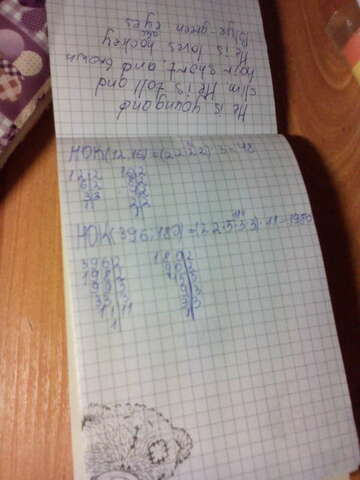 He is young and
slim. He is tall and
hair short and brown
He is loves hockey
Blue-green eyes
НОК(12,16)=(2·2·2·2)·3=48
12|2 16|2
6|2 8|2
3|3 4|2
1 2|2
1
НОК(396,180)=(2·2·5·3·3)·11=1980
396|2 180|2
198|2 90|2
99|3 45|3
33|3 15|3
11|11 5|5
1 1